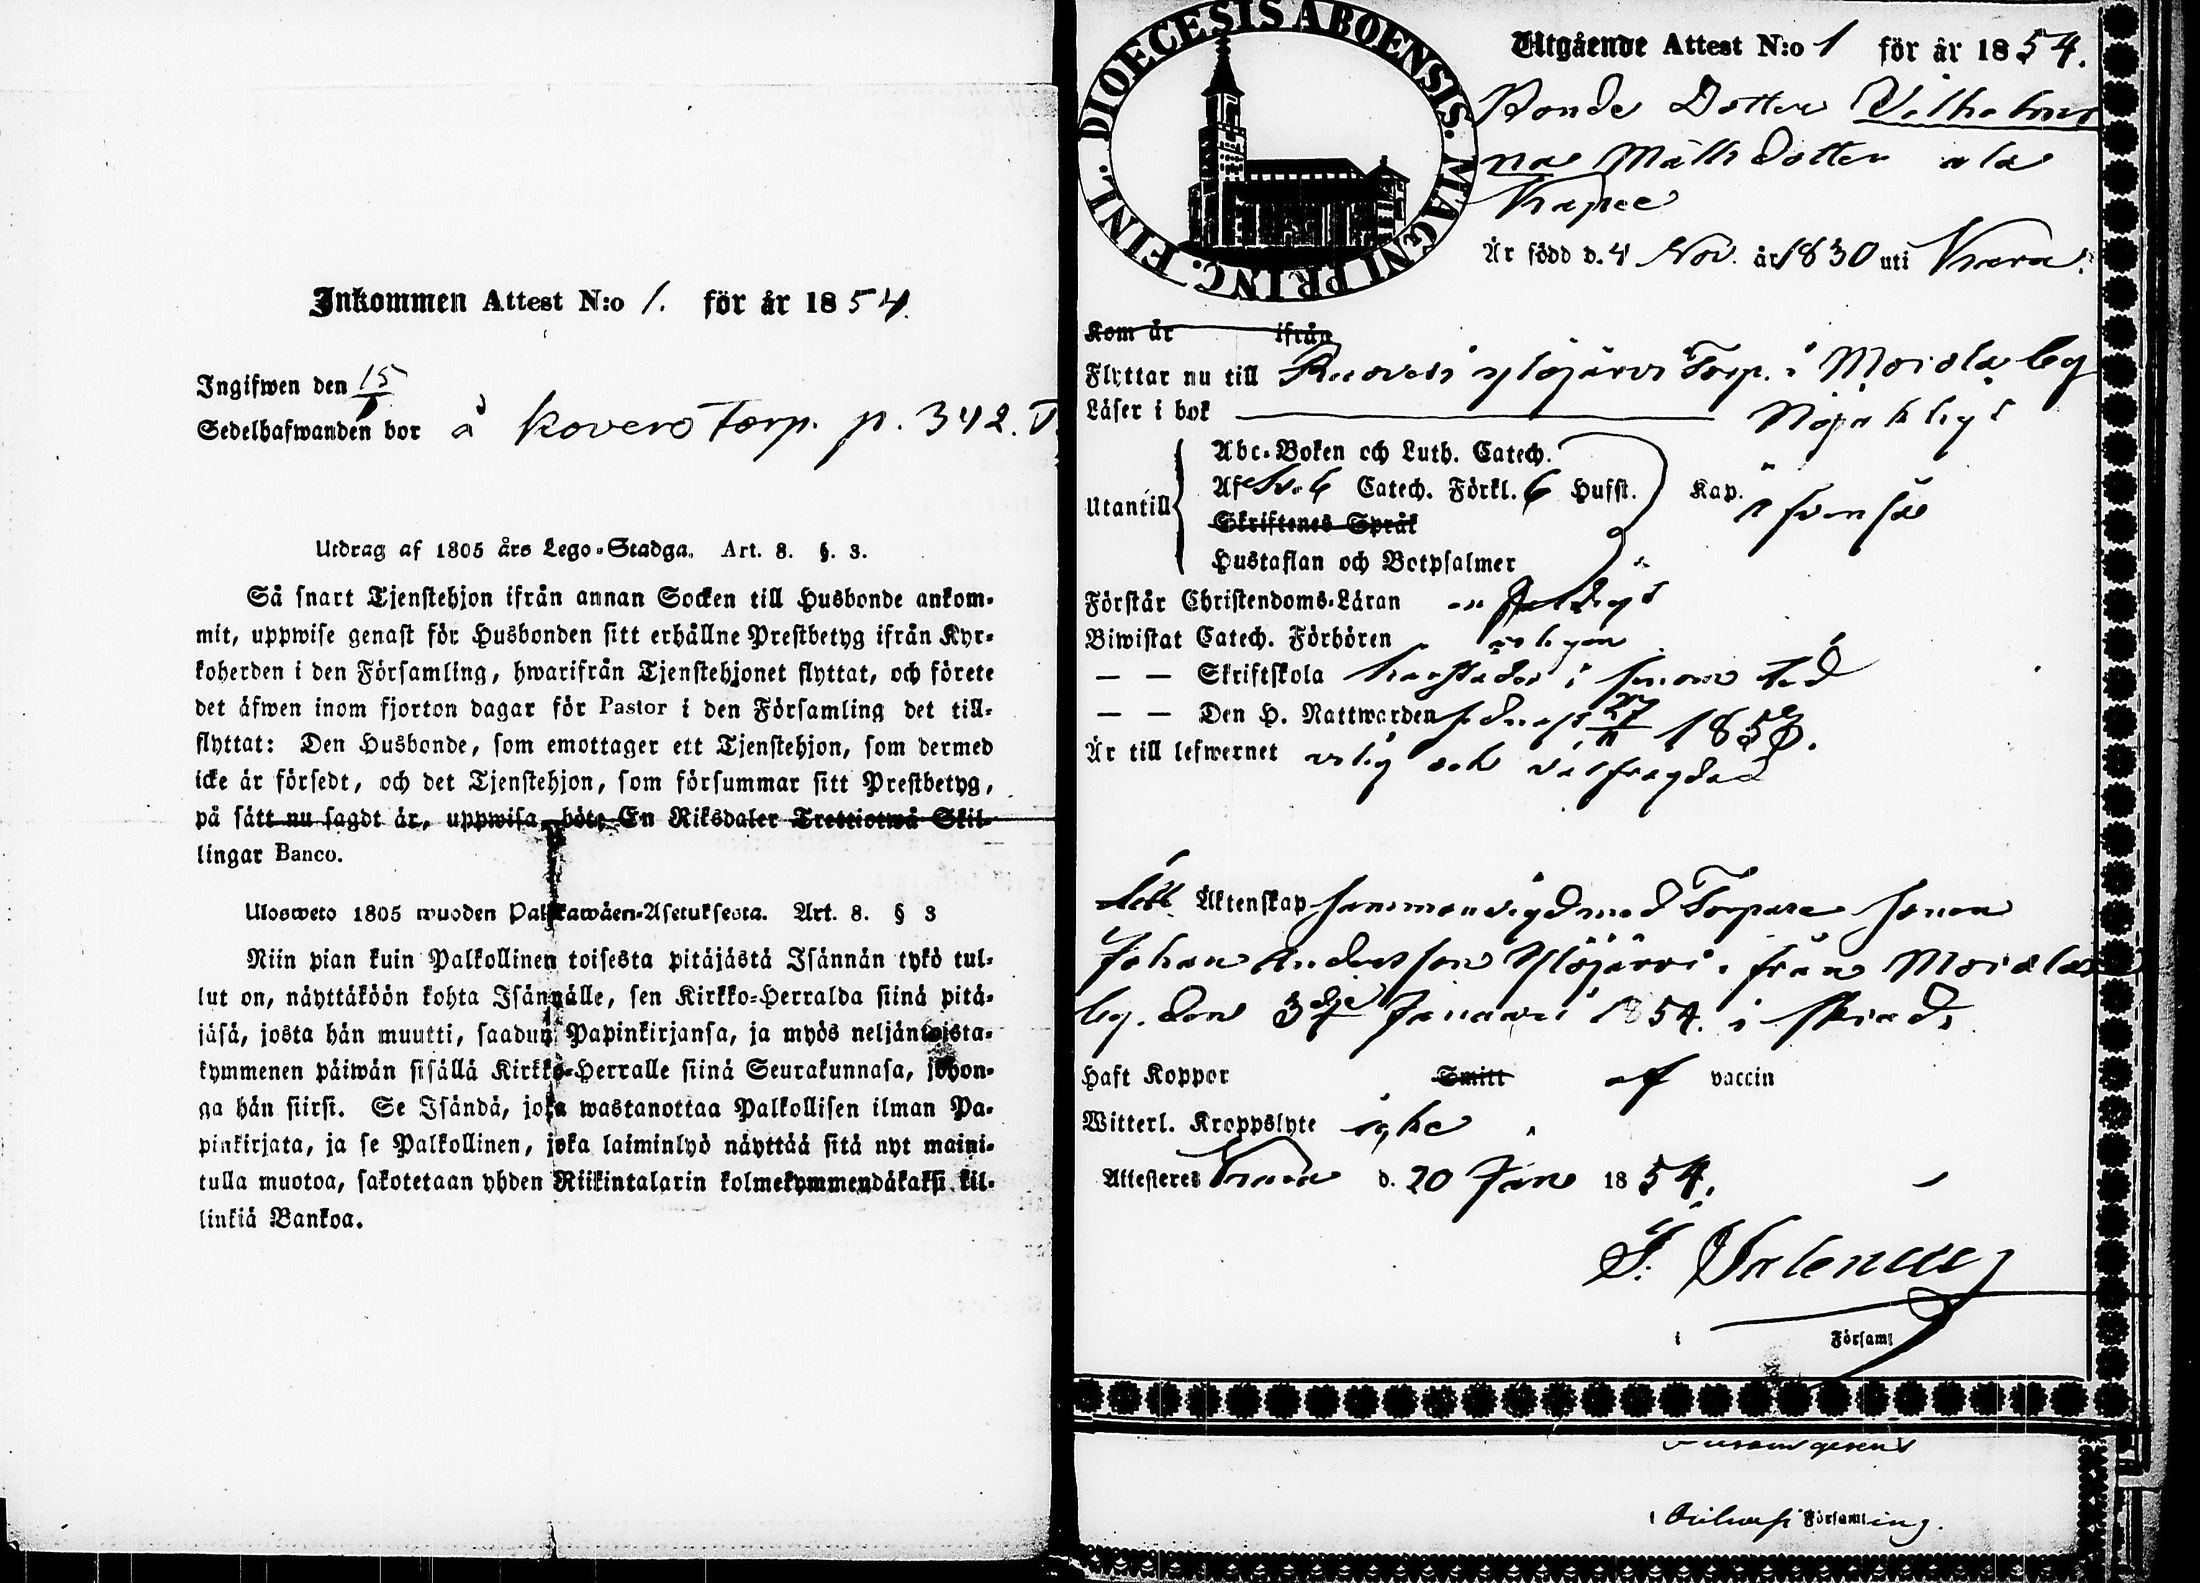 Inkommen Attest N:o 1. för år 1854.
Ingifwen den 15
Sedelhafwanden bor å Kovero Torp. p. 342.
Utdrag af 1805 års Lego-Stadga. Art. 8. §. 3.
Så snart Tjenstehjon ifrån annan Socken till Husbonde ankom-
mit, uppwise genast för Husbonden sitt erhållne Prestbetyg ifrån Kyr-
koherden i den Församling, hwarifrån Tjenstehjonet flyttat, och förete
det äfwen inom fjorton dagar för Pastor i den Församling det till-
flyttat: Den Husbonde, som emottager ett Tjenstehjon, som dermed
icke är försedt, och det Tjenstehjon, som försummar sitt Prestbetyg,
på sätt nu sagdt är, uppwisa, böte En Riksdaler Trettiotwå Skil-
lingar Banco.
Ulosweto 1805 wuoden Palkkawäen-Asetuksesta. Art. 8. § 3
Niin pian kuin Palkollinen toisesta pitäjästä Isännän tykö tul-
lut on, näyttäköön kohta Isännälle, sen Kirkko-Herralda siinä pitä-
jäsä, josta hän muutti, saadun Papinkirjansa, ja myös neljäntoista-
kymmenen päiwän sisällä Kirkko-Herralle siinä Seurakunnasa, johon-
ga hän siirsi. Se Isändä, joka wastanottaa Palkollisen ilman Pa-
pinkirjata, ja se Palkollinen, joka laiminlyö näyttää sitä nyt maini-
tulla muotoa, sakotetaan yhden Riikintalarin kolmekymmendäkaksi kil-
linkiä Bankoa.
DIOECESIS ABOENSIS. MAGNI PRINC. FINL.
Utgående Attest N:o 1 för år 1854.
Bonde Dotter Vilhelmi
na Matts dotter ala
Är född d. 4 Nov. år 1830 uti
Kom år ifrån
Flyttar nu till Ruovesi Ylöjärvi Torp. i Moisla by
Läser i bok Nöjaktigt
Utantill Abc-Boken och Luth. Catech.
Af Catech. Förkl. 6 Hufst. Kap.
Skriftenes Språk
Hustaflan och Botpsalmer
Förstår Christendoms-Läran
Biwistat Catech. Förhören årligen
— — Skriftskola i sinom tid
— — Den H. Nattwarden sednast 27/11 1853.
Är till lefwernet ärlig och välfrägdad
Äktenskap sammanvigd med Torpare sonen
Johan Andersson Ylöjärvi från Moisla
by. den 3dje Januari 1854.
Haft Koppor Smitt af vaccin
Witterl. Kroppslyte icke
Attesteres d. 20 Jan 1854.
i Församl
i Församling.